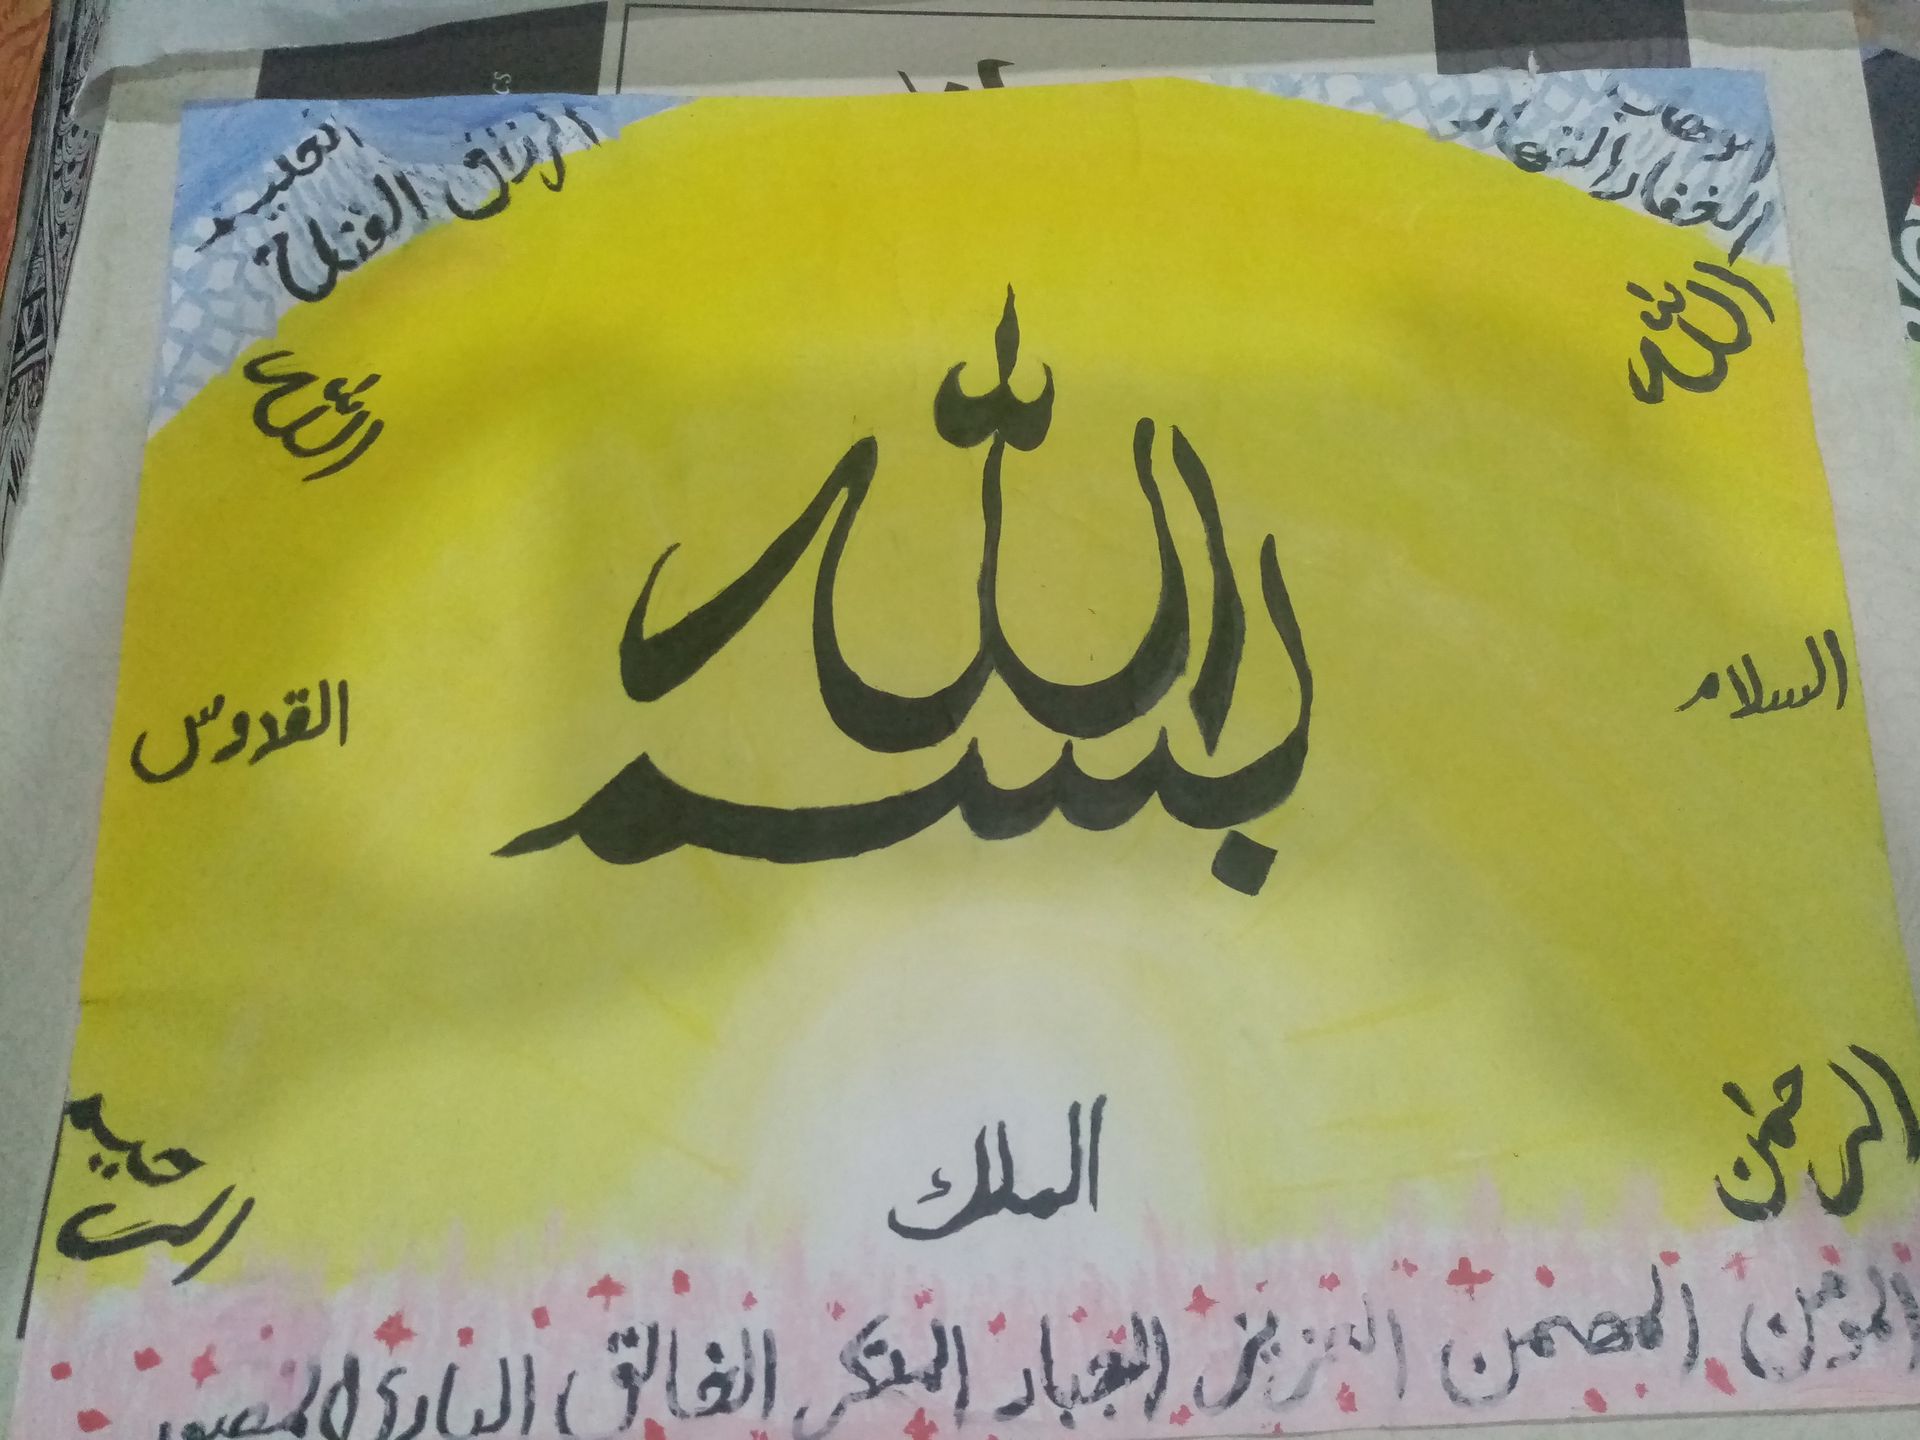 الوهاب
الغفار القهار
العليم
الرزاق الفتاح
الله
الله
بسم الله
السلام
القدوس
الرحمن
الرحيم
الملك
المؤمن المهيمن العزيز الجبار المتكبر الخالق البارئ المصور